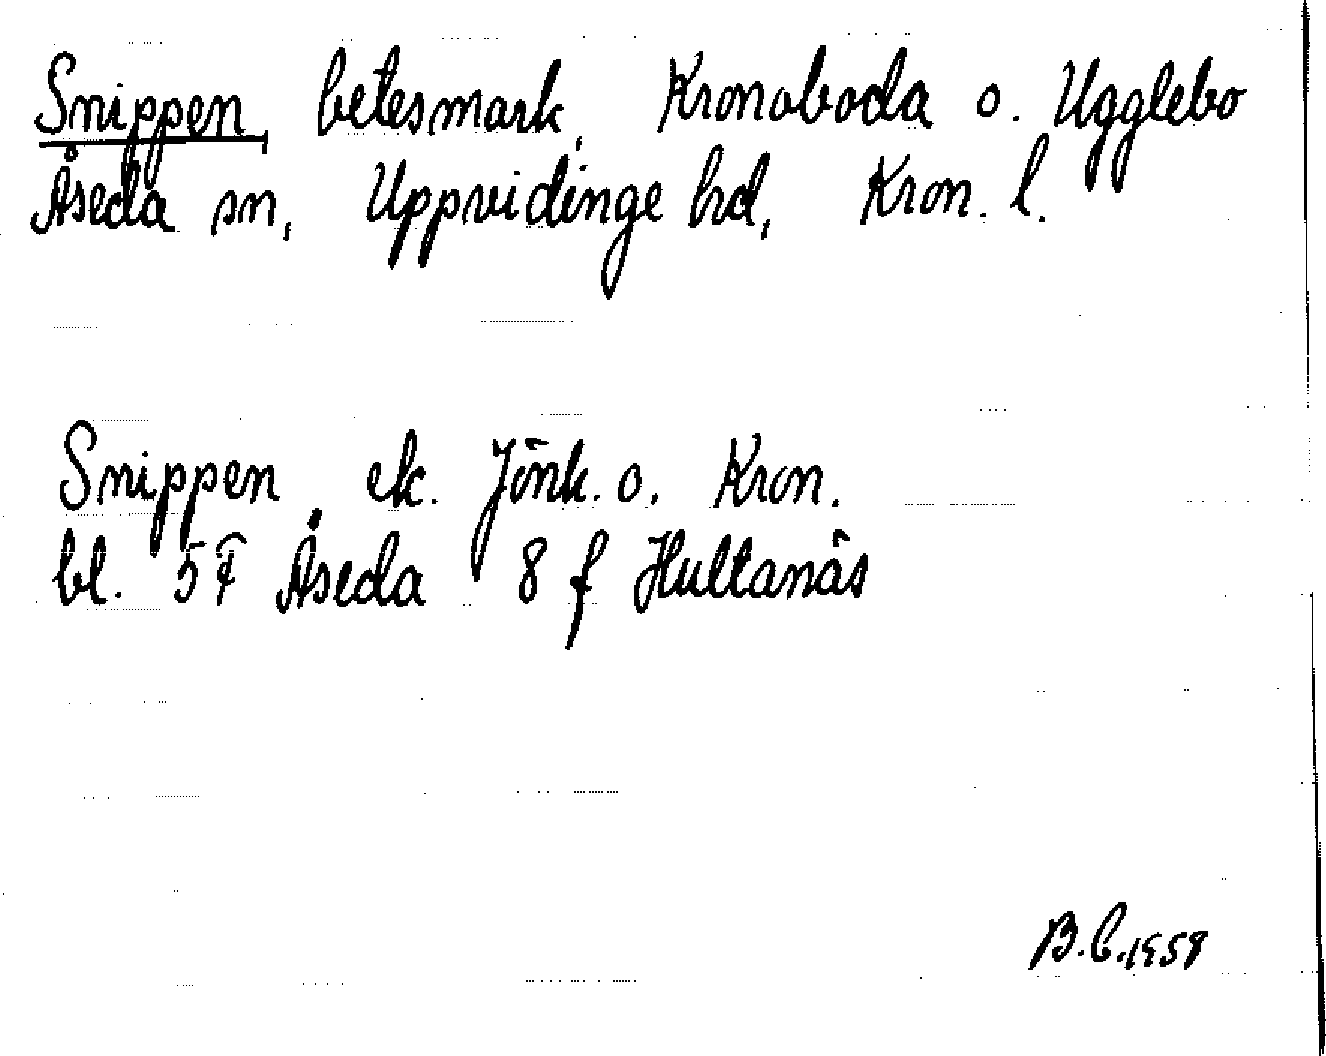 Snippen, betesmark, Kronoboda o. Ugglebo
Åseda sn, Uppvidinge hd, Kron. l.
Snippen, ek. Jönk. o. Kron.
bl. 5F Åseda 8 f Hultanäs
B.C. 1958